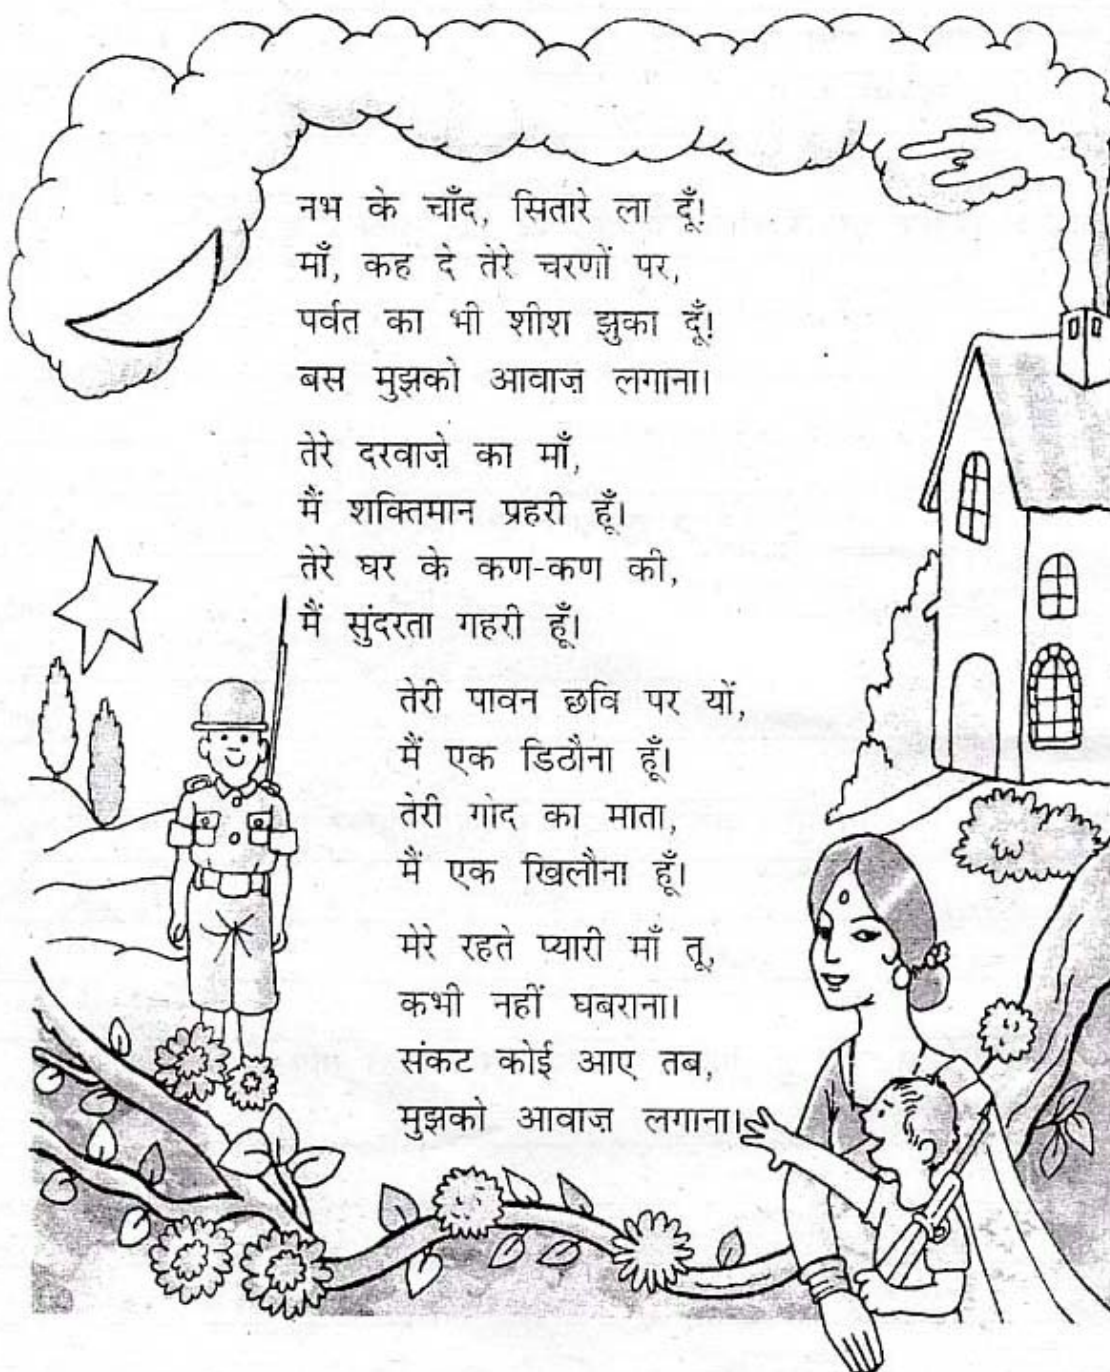 नभ के चाँद, सितारे ला दूँ!
माँ, कह दे तेरे चरणों पर,
पर्वत का भी शीश झुका दूँ!
बस मुझको आवाज़ लगाना।
तेरे दरवाज़े का माँ,
मैं शक्तिमान प्रहरी हूँ।
तेरे घर के कण-कण की,
मैं सुंदरता गहरी हूँ।
तेरी पावन छवि पर यों,
मैं एक डिठौना हूँ।
तेरी गोद का माता,
मैं एक खिलौना हूँ।
मेरे रहते प्यारी माँ तू,
कभी नहीं घबराना।
संकट कोई आए तब,
मुझको आवाज़ लगाना।